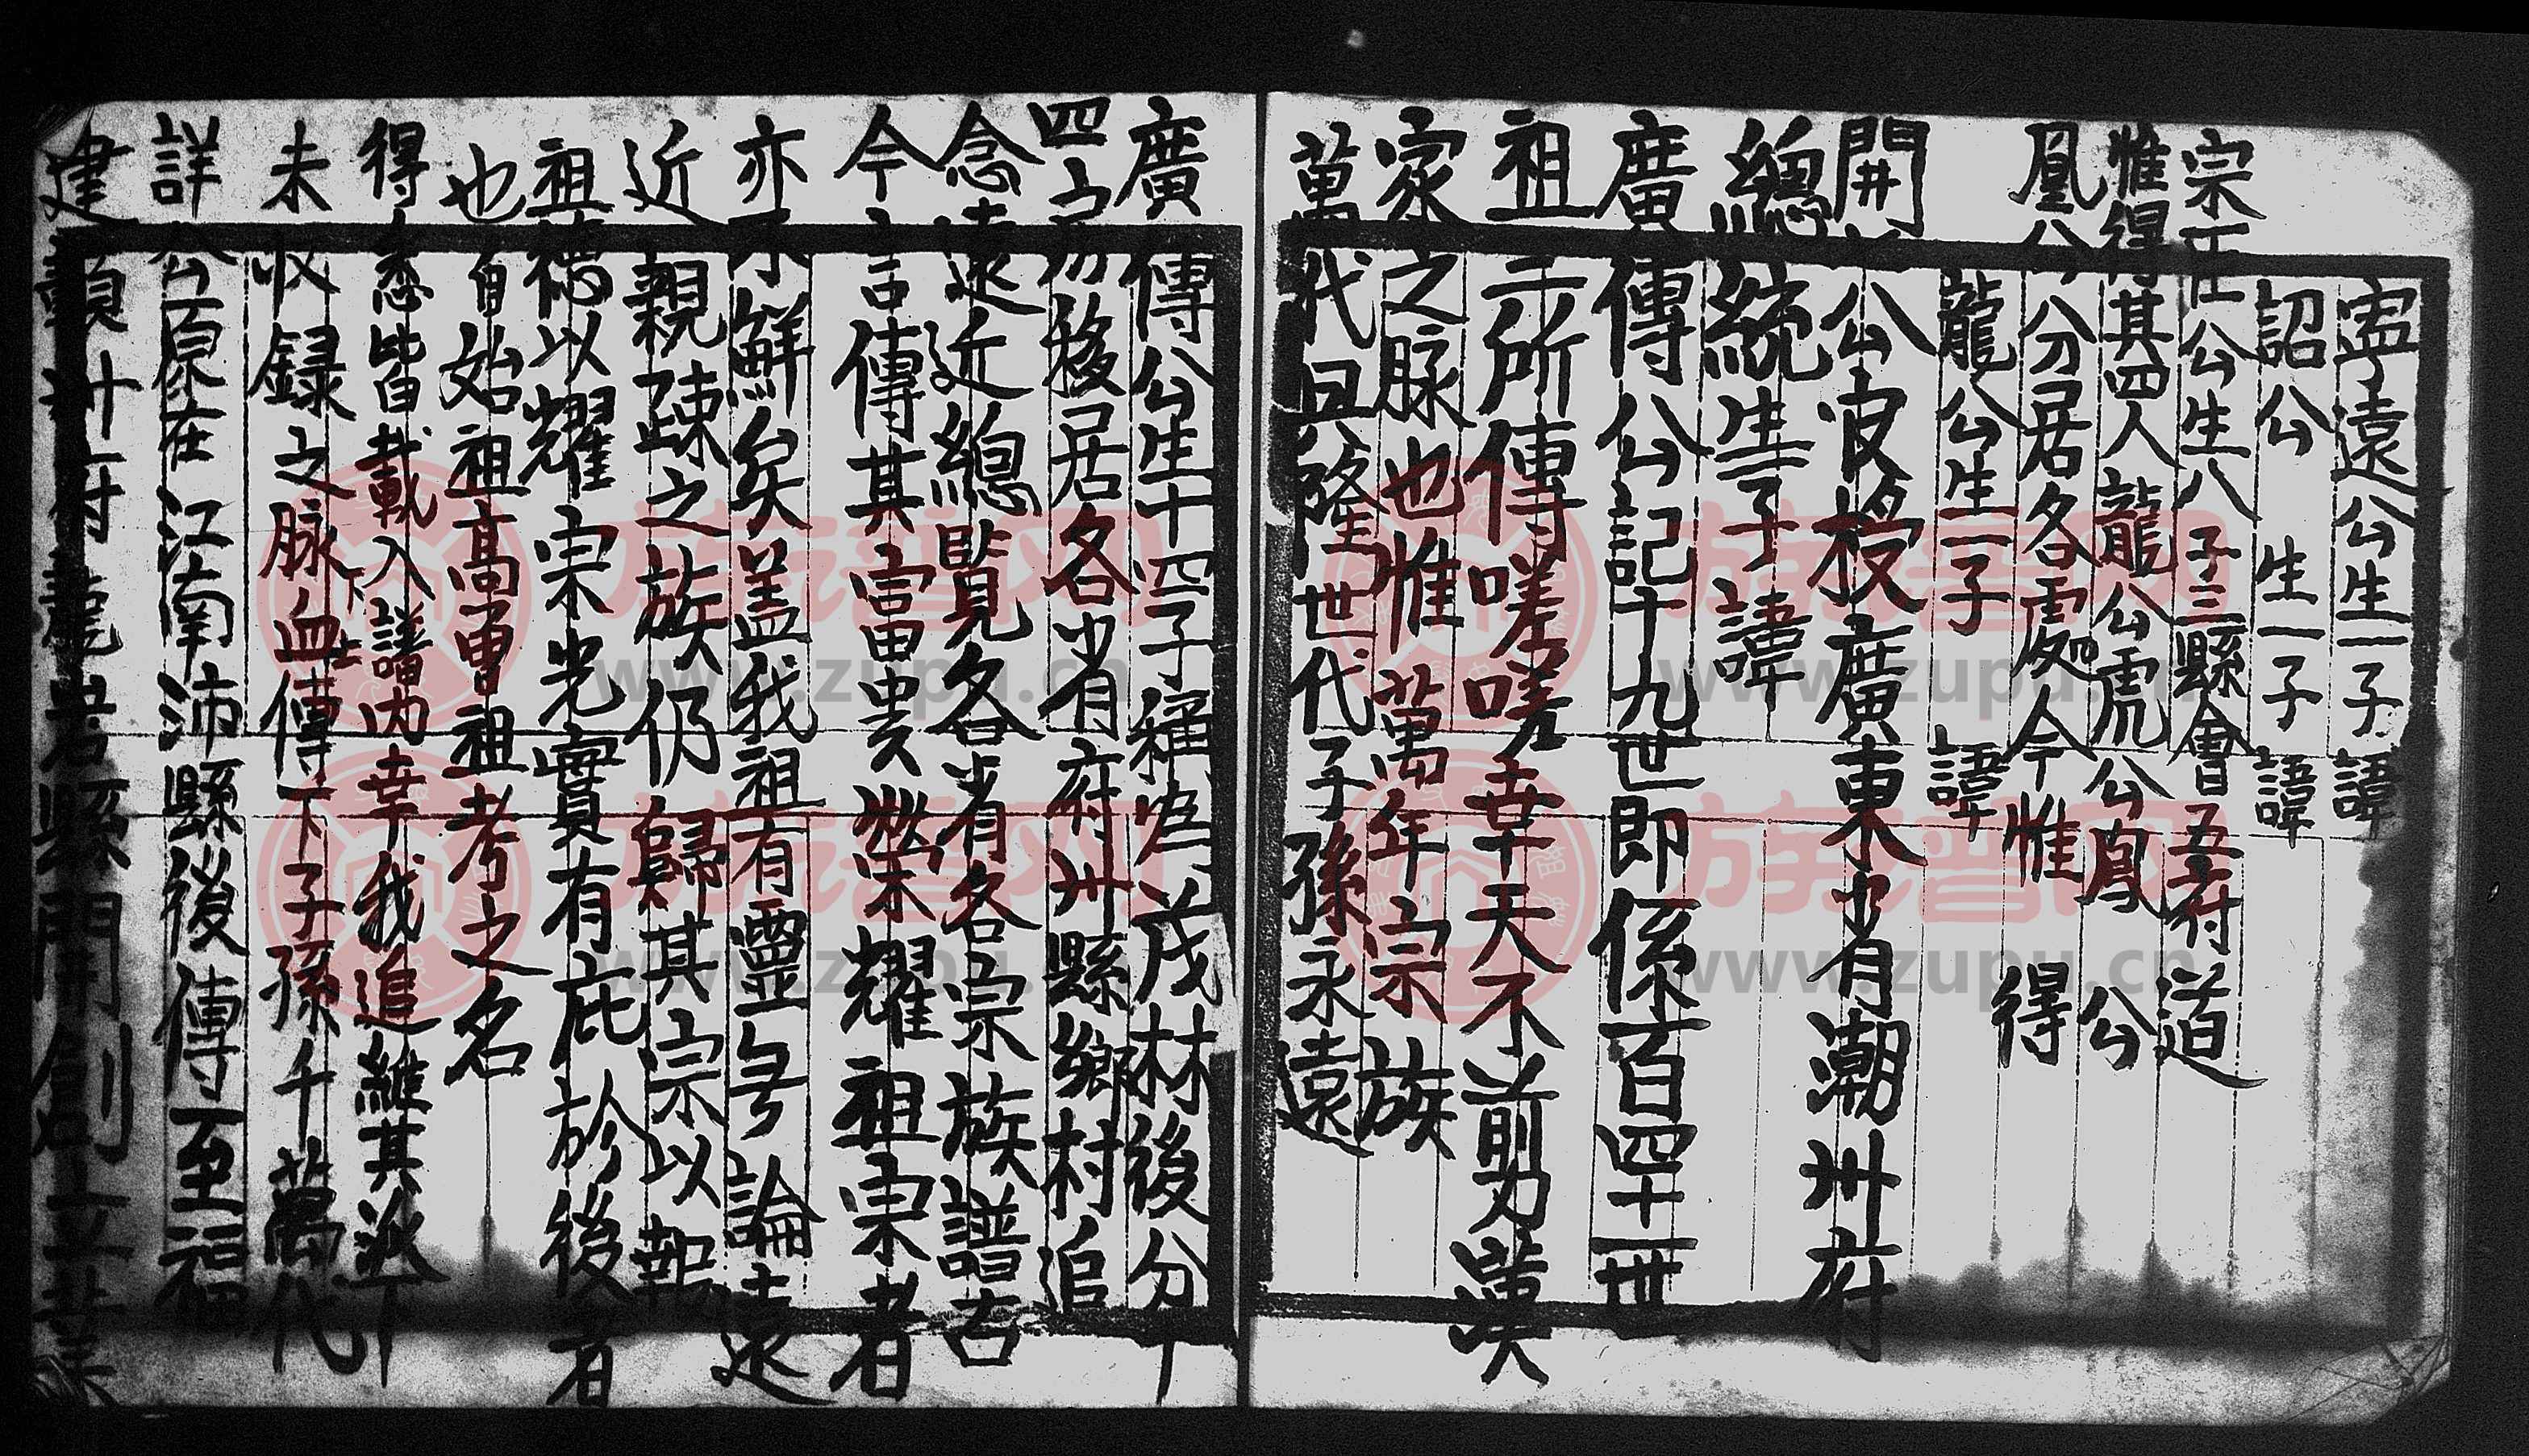 寧遠公生一子諱
詔公 生一子諱
宗仕公生八子三縣會五府道
惟得其四人龍公虎公鳳公
凰公分居各處今惟得
龍公生一子 諱
開 公官授廣東省潮州府
總統生子諱
廣傳公記十九世即係百四十一世
祖 所傳嗟嗟幸天不剪漢
家之脉也惟萬年宗族
萬代 隆世代子孫永遠
廣傳公生十四子 茂林後分十
四 房移居各省府州縣鄉村追
念遠近總覽各省各宗族譜古
今言傳其富貴榮耀祖宗者
亦不鮮矣盖我祖有靈 論遠
近親疎之族仍歸其宗以報
祖德以耀宗光實有庇於後者
也自始祖高曾祖考之名
得悉皆載入譜內幸我追維其派下
未收錄之脉血傳下子孫千萬代
詳公原在江南沛縣後傳至福
建 州府 縣開創立業
族譜网
www.zupu.cn
族譜网
www.zupu.cn
族譜网
www.zupu.cn
族譜网
www.zupu.cn